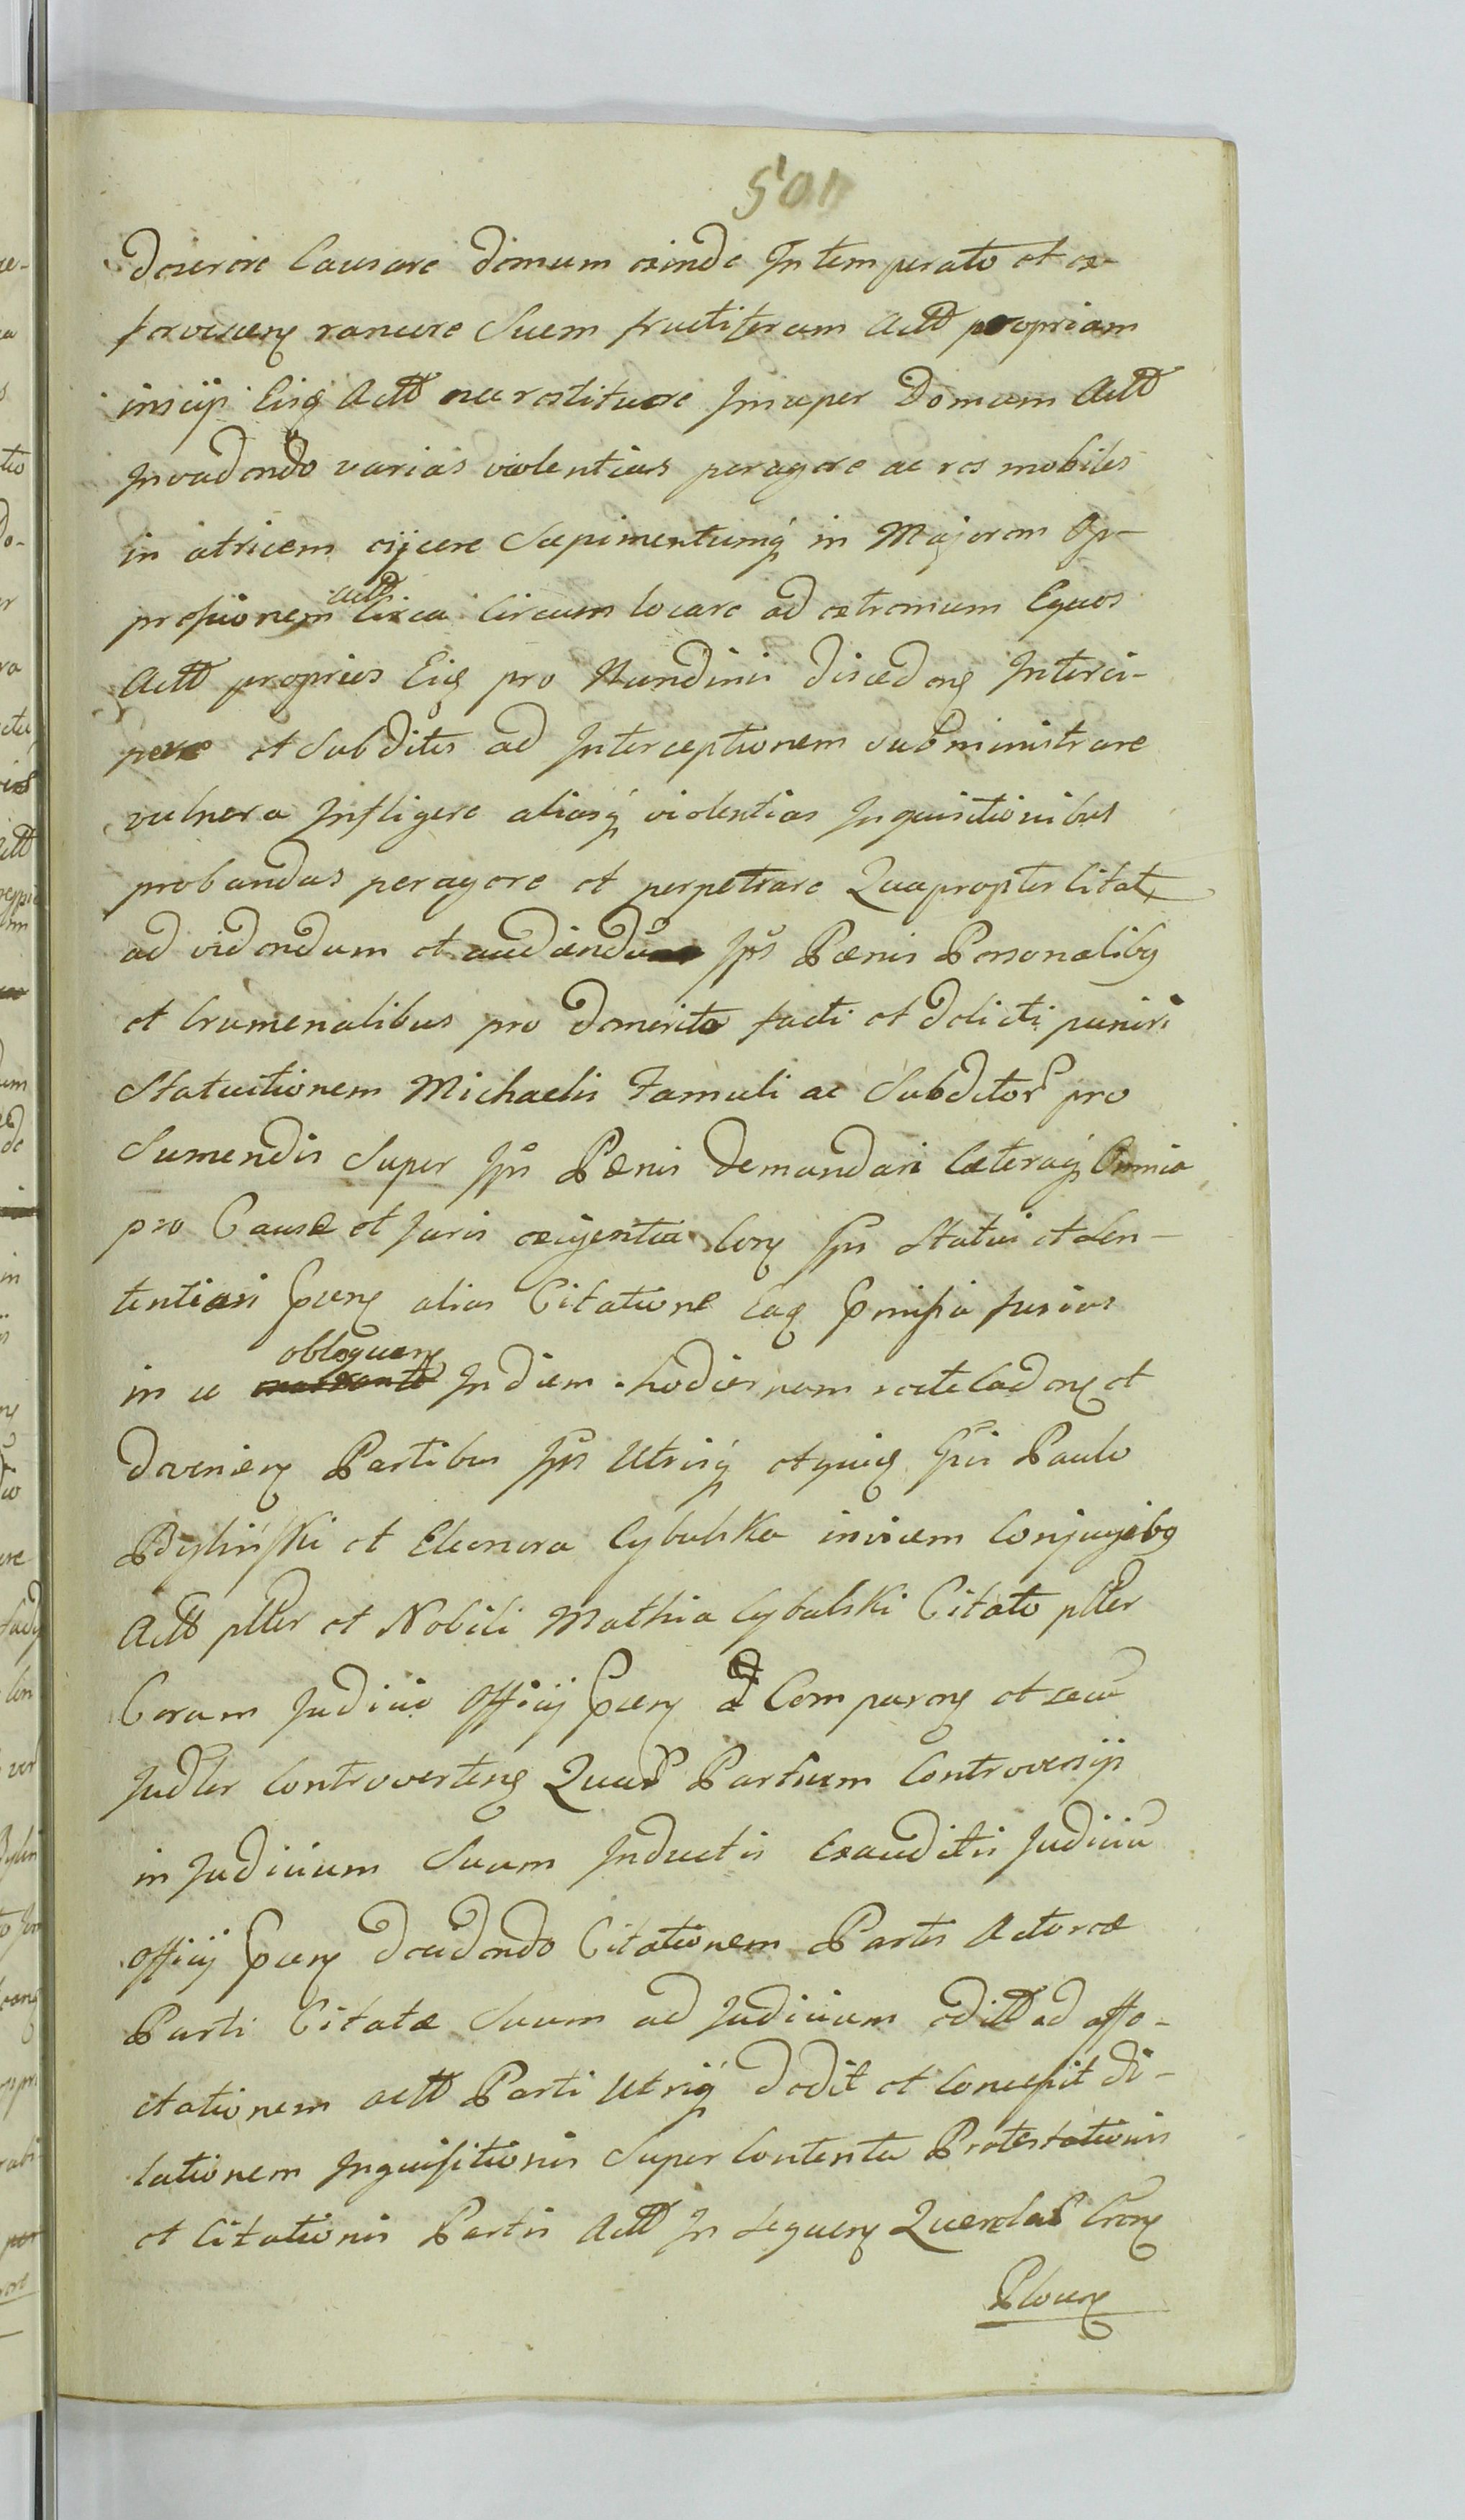 501
deserere Causare domum exinde Intemperato et ex-
fervescen rancore Suem fructiferam Actt propriam
insciis Eisq Actt nec restituere Insuper Domum Actt
Invadendo varias violentias peragere ac res mobiles
in atricem eijcere Sepimentumq in Majorem Op-
pressionem Actt Circa Circum locare ad extremum Equos
Actt proprios Eiq pro Nundinis disceden Interci-
pere et Subditos ad Interceptionem subministrare
vulnera Infligere aliasq violentias Inquisitionibus
probandas peragere et perpetrare Quapropter Citat
ad videndum et audiendū Ips Pœnis Personalibq
et Crumenalibus pro demerito facti et delicti puniri
Statuitionem Michaelis Famuli ac Subditor pro
Sumendis Super Ips Pœnis demandari Cæteraq Omnia
pro Causæ et Juris exigentia Cor Ips Statui et Sen-
tentiari prn alias Citatione Eaq præmissa fusius
in se obloquen In diem hodiernam recte Caden et
devenien Partibus Ips Utrisq utpniq Gsis Paulo
Byliński et Eleonora Cybulska invicem Conjugibq
Actt plter et Nobili Mathia Cybulski Citato plter
Coram Judicio Officij prn Comparen et secū
Judler Controverten Quar Partium Controversijs
in Judicium Suum Inductis Exauditis Judiciū
Officij prn decidendo Citationem Partis Actoreæ
Parti Citatæ Suum ad Judicium edi Actt ad affe-
ctationem Actt Parti Utriq dedit et Concessit di-
lationem Inquisitionis Super Contenta Protestationis
et Citationis Partis Actt In Sequen Querelas Cron
Plocen